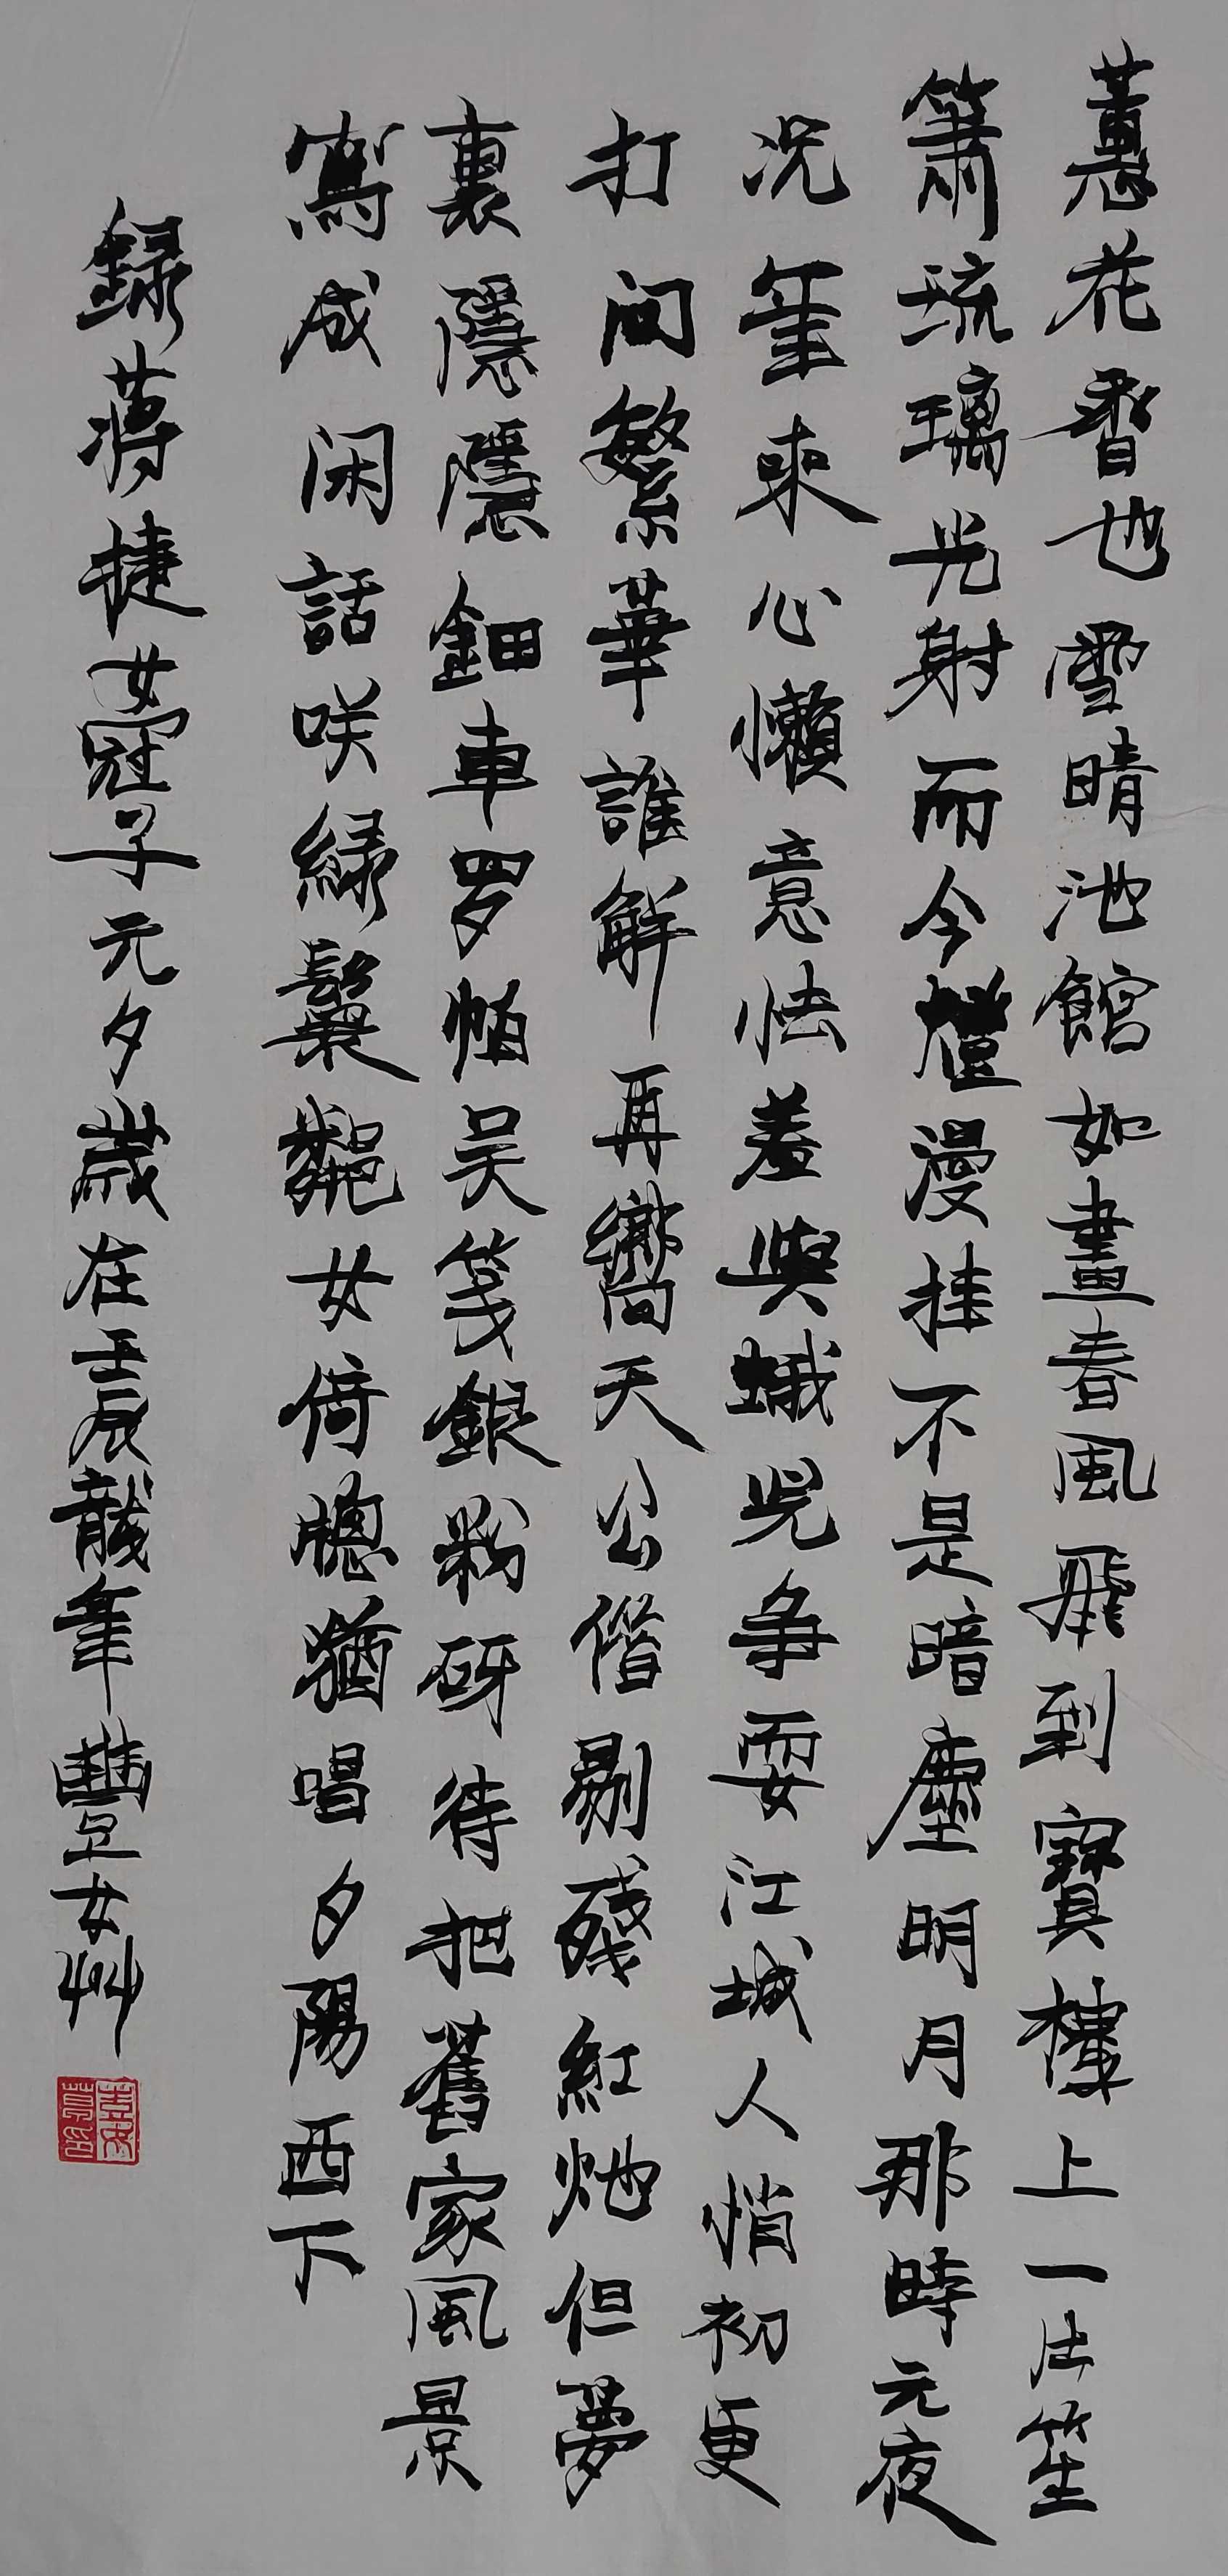 蕙花香也雪晴池館如畫春風飛到寶樓上一片笙
簫琉璃光射而今燈漫挂不是暗塵明月那時元夜
况年來心懶意怯羞與蛾兒争耍江城人悄初更
打問繁華誰解再嚮天公借剔殘紅灺但夢
裏隱隱鈿車罗帕吴笺銀粉砑待把舊家風景
寫成闲話咲緑鬟鄰女倚牕猶唱夕陽西下
録蒋捷女冠子元夕歲在壬辰龍年豐